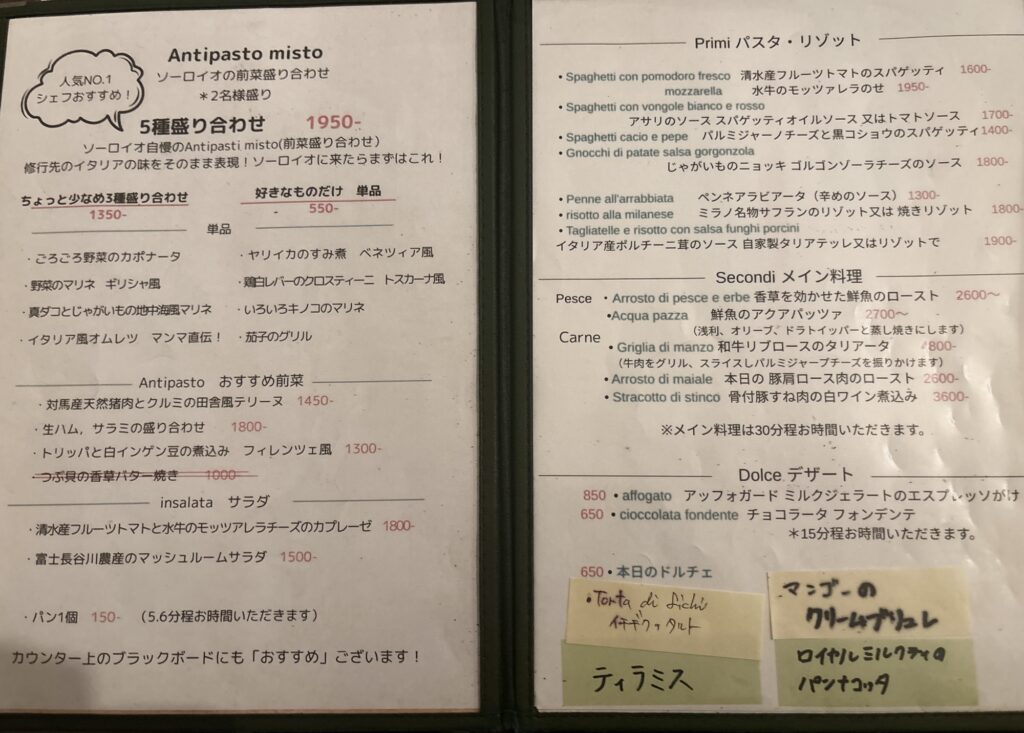 人気NO.1
シェフおすすめ！
Antipasto misto
ソーロイオの前菜盛り合わせ
＊2名様盛り
5種盛り合わせ 1950-
ソーロイオ自慢のAntipasti misto(前菜盛り合わせ)
修行先のイタリアの味をそのまま表現！ソーロイオに来たらまずはこれ！
ちょっと少なめ3種盛り合わせ
1350-
好きなものだけ 単品
550-
単品
・ごろごろ野菜のカポナータ
・野菜のマリネ ギリシャ風
・真ダコとじゃがいもの地中海風マリネ
・イタリア風オムレツ マンマ直伝！
・ヤリイカのすみ煮 ベネツィア風
・鶏白レバーのクロスティーニ トスカーナ風
・いろいろキノコのマリネ
・茄子のグリル
Antipasto おすすめ前菜
・対馬産天然猪肉とクルミの田舎風テリーヌ 1450-
・生ハム，サラミの盛り合わせ 1800-
・トリッパと白インゲン豆の煮込み フィレンツェ風 1300-
・つぶ貝の香草バター焼き 1000-
insalata サラダ
・清水産フルーツトマトと水牛のモッツアレラチーズのカプレーゼ 1800-
・富士長谷川農産のマッシュルームサラダ 1500-
・パン1個 150- （5.6分程お時間いただきます）
カウンター上のブラックボードにも「おすすめ」ございます！
Primi パスタ・リゾット
・Spaghetti con pomodoro fresco 清水産フルーツトマトのスパゲッティ 1600-
mozzarella 水牛のモッツァレラのせ 1950-
・Spaghetti con vongole bianco e rosso
アサリのソース スパゲッティオイルソース 又はトマトソース 1700-
・Spaghetti cacio e pepe パルミジャーノチーズと黒コショウのスパゲッティ 1400-
・Gnocchi di patate salsa gorgonzola
じゃがいものニョッキ ゴルゴンゾーラチーズのソース 1800-
・Penne all'arrabbiata ペンネアラビアータ（辛めのソース） 1300-
・risotto alla milanese ミラノ名物サフランのリゾット又は 焼きリゾット 1800-
・Tagliatelle e risotto con salsa funghi porcini
イタリア産ポルチーニ茸のソース 自家製タリアテッレ又はリゾットで 1900-
Secondi メイン料理
Pesce ・Arrosto di pesce e erbe 香草を効かせた鮮魚のロースト 2600〜
・Acqua pazza 鮮魚のアクアパッツァ 2700〜
（浅利、オリーブ、ドラトイッパーと蒸し焼きにします）
Carne ・Griglia di manzo 和牛リブロースのタリアータ 800-
（牛肉をグリル、スライスしパルミジャーブチーズを振りかけます）
・Arrosto di maiale 本日の 豚肩ロース肉のロースト 2600-
・Stracotto di stinco 骨付豚すね肉の白ワイン煮込み 3600-
※メイン料理は30分程お時間いただきます。
Dolce デザート
850 ・affogato アッフォガード ミルクジェラートのエスプレッソがけ
650 ・cioccolata fondente チョコラータ フォンデンテ
＊15分程お時間いただきます。
650 ・本日のドルチェ
・Torta di fichi
イチヂクのタルト
ティラミス
マンゴーの
クリームブリュレ
ロイヤルミルクティの
パンナコッタ